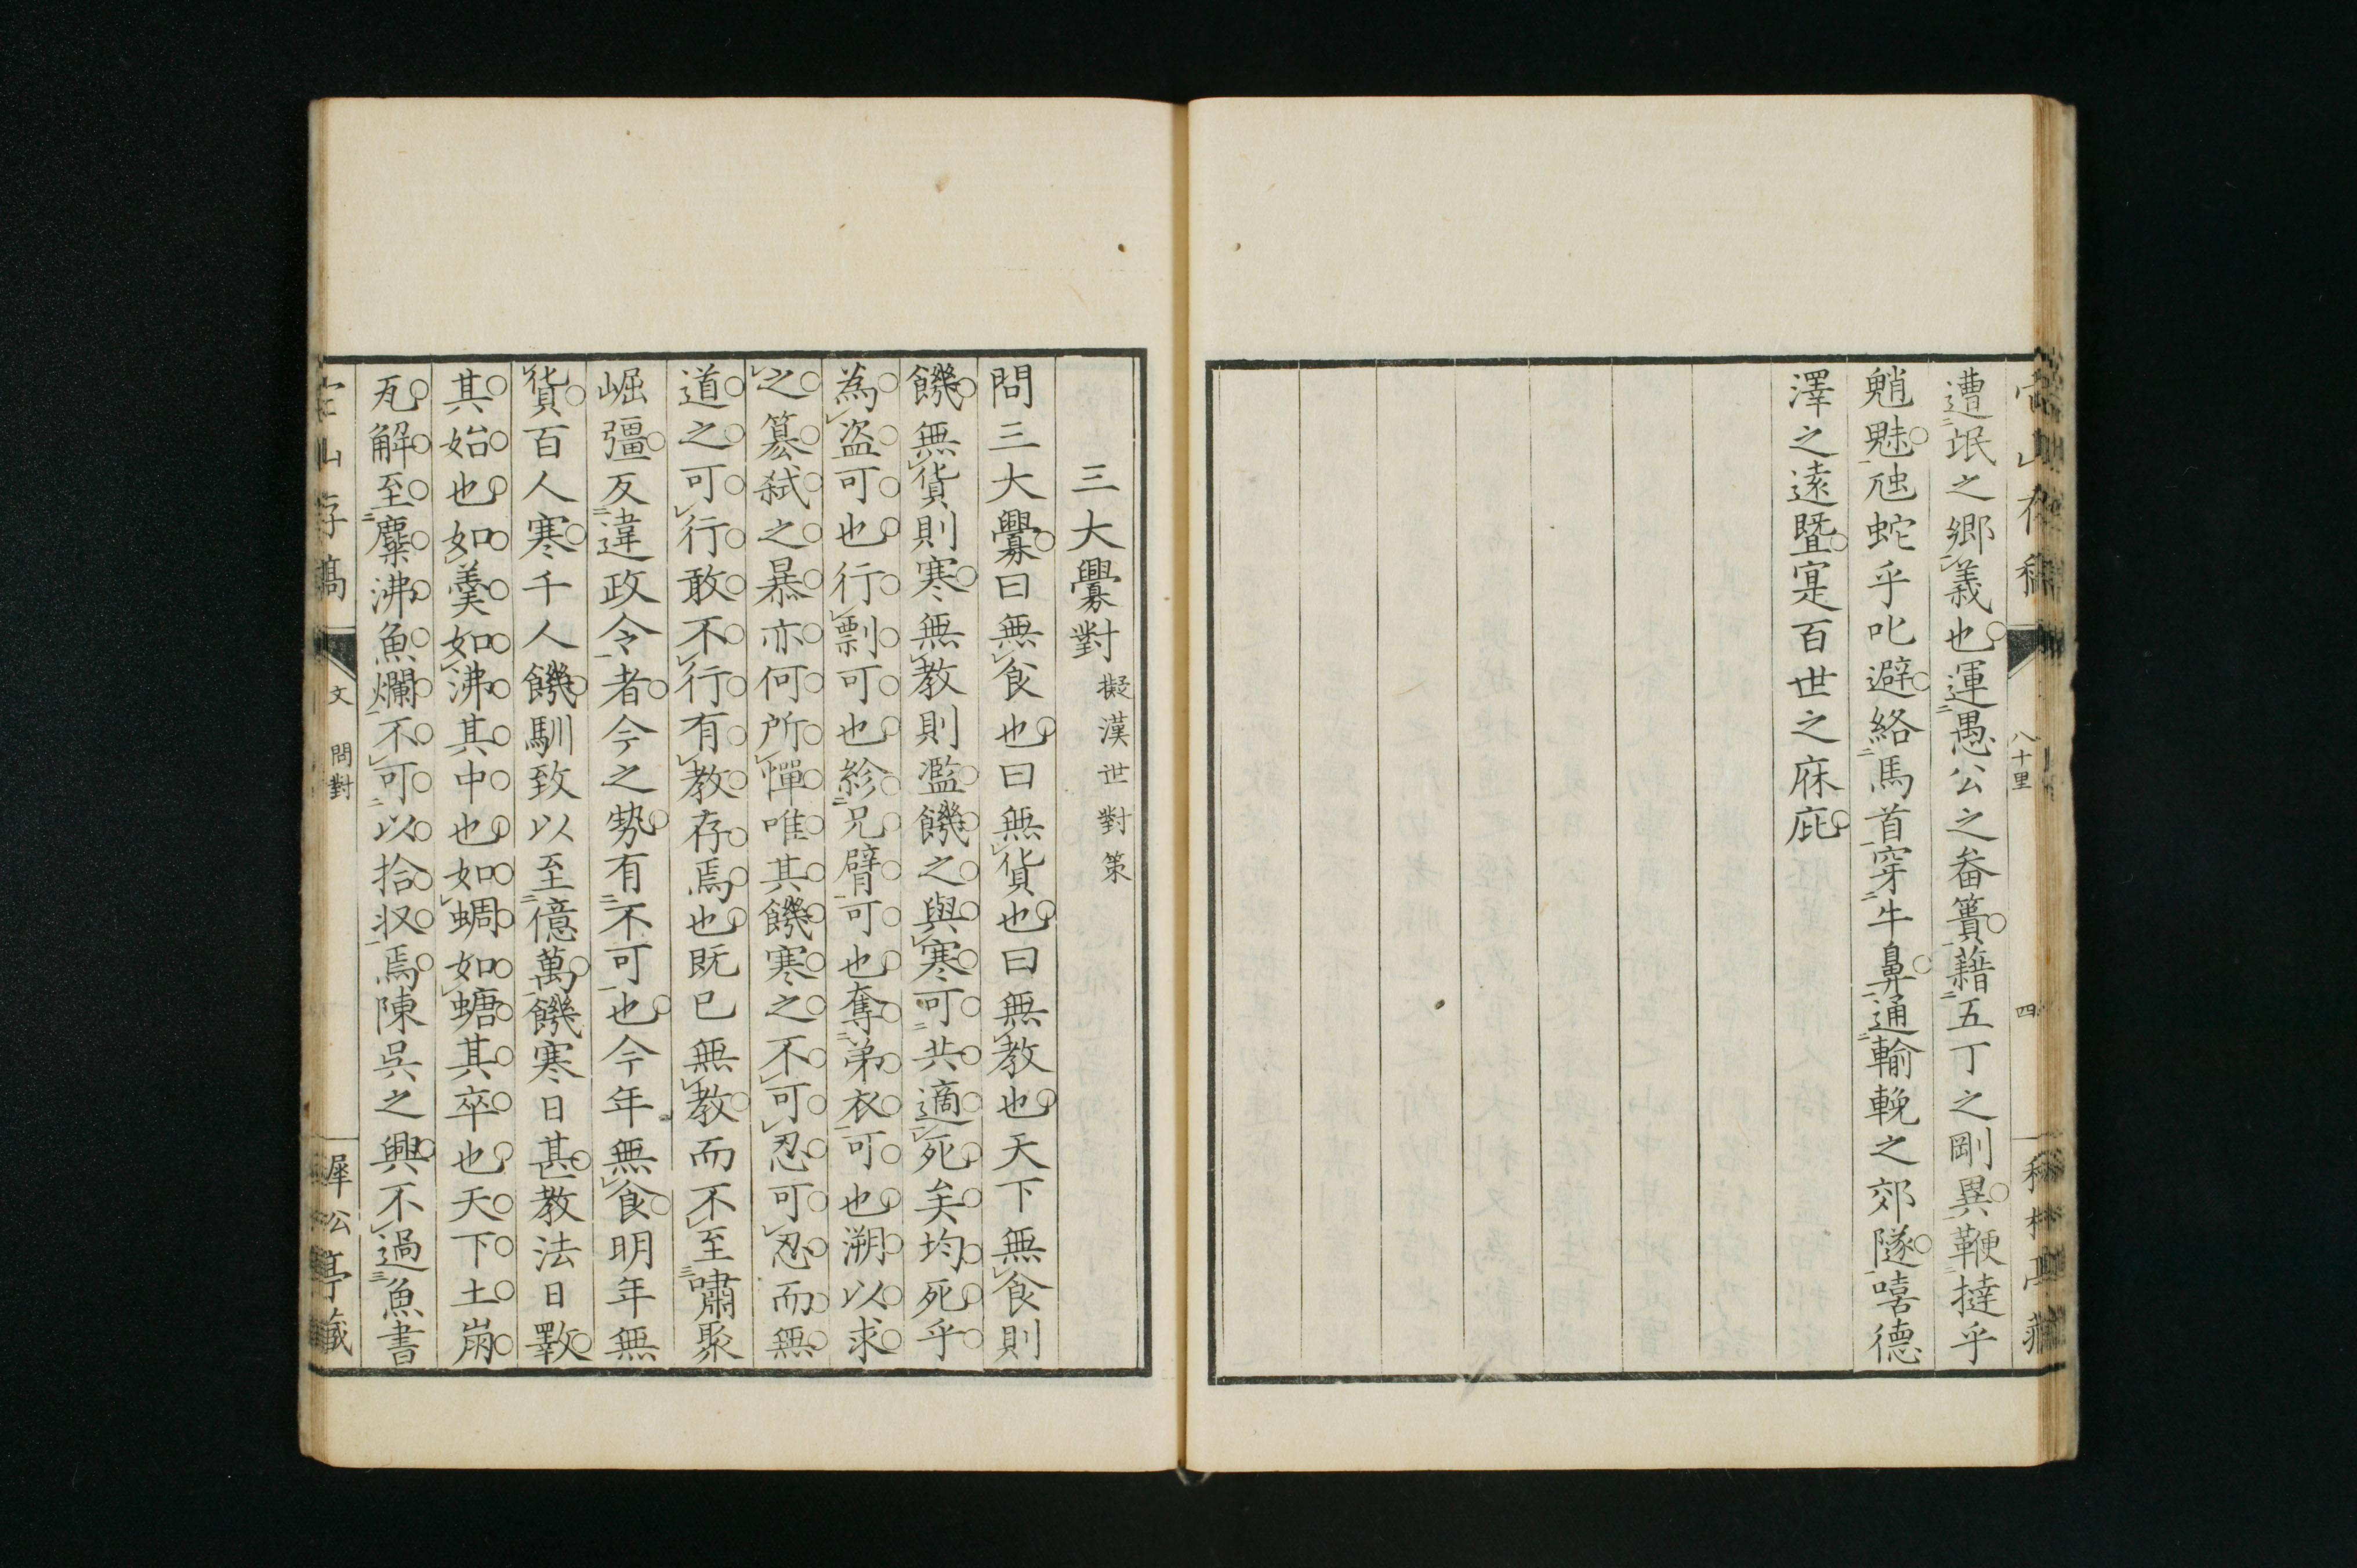 遭氓之鄉義也運愚公之畚簣藉五丁之剛異鞭撻乎
魈魅虺蛇乎叱避絡馬首穿牛鼻通輸輓之郊隧嘻德
澤之遠曁寔百世之庥庇
八十里
四
三大釁對 擬漢世對策
問三大釁曰無食也曰無貨也曰無教也天下無食則
饑無貨則寒無教則濫饑之與寒可共適死矣均死乎
為盗可也行剽可也紾兄臂可也奪弟衣可也溯以求
之簒弑之暴亦何所憚唯其饑寒之不可忍可忍而無
道之可行敢不行有教存焉也既已無教而不至嘯聚
崛彊反違政令者今之勢有不可也今年無食明年無
貨百人寒千人饑馴致以至億萬饑寒日甚教法日斁
其始也如羹如沸其中也如蜩如螗其卒也天下土崩
瓦解至麋沸魚爛不可以拾収焉陳呉之興不過魚書
文 問對
犀公亭藏